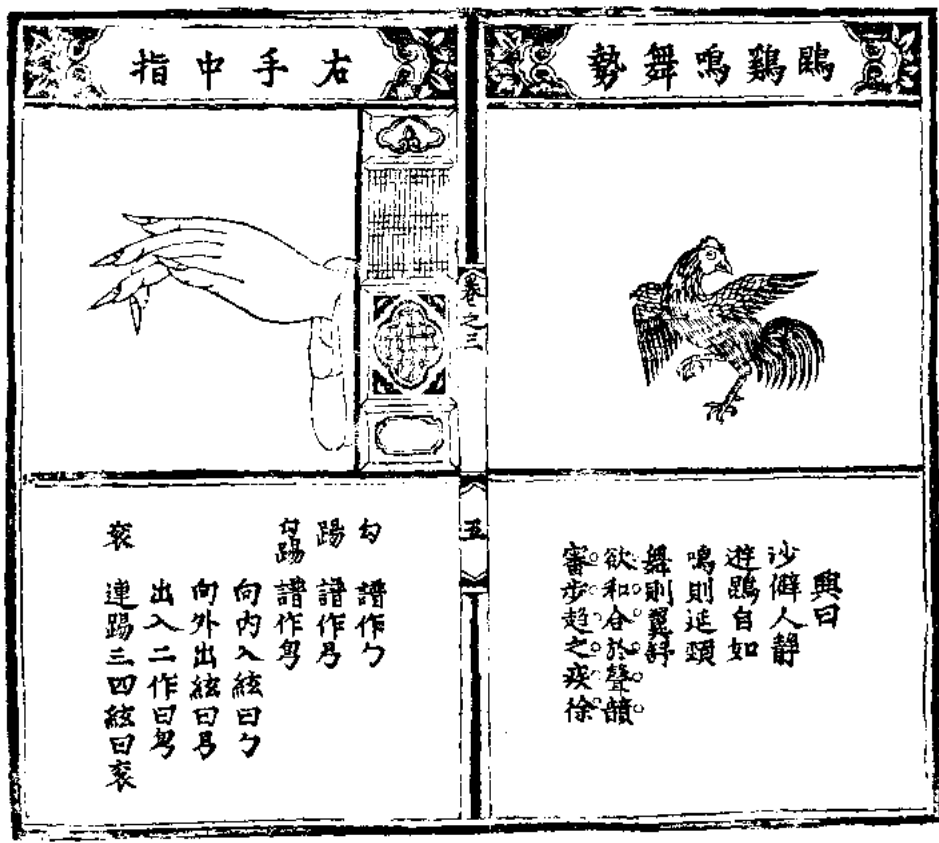 鶤鷄鳴舞勢
興曰
沙僻人靜
遊鶤自如
鳴則延頸
舞則翼舒
欲和合於聲韻
審步趋之疾徐
卷之三
五
右手中指
勾 譜作勹
踢 譜作𠃓
勾踢 譜作
向內入絃曰勹
向外出絃曰𠃓
出入二作曰
滚 連踢三四絃曰滚